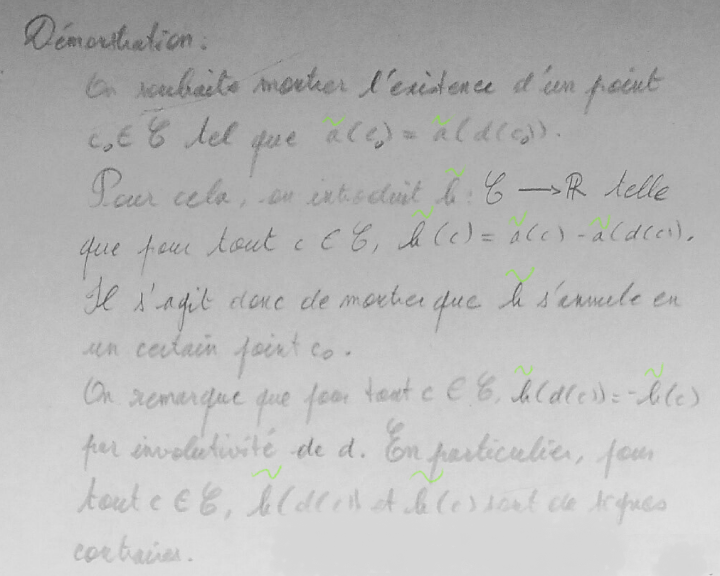 Démonstration :
On souhaite montrer l'existence d'un point
c₀ ∈ 𝒞 tel que ã(c₀) = ã(d(c₀)).
Pour cela, on introduit h̃ : 𝒞 ⟶ ℝ telle
que pour tout c ∈ 𝒞, h̃(c) = ã(c) - ã(d(c)).
Il s'agit donc de montrer que h̃ s'annule en
un certain point c₀.
On remarque que pour tout c ∈ 𝒞, h̃(d(c)) = -h̃(c)
par involutivité de d. En particulier, pour
tout c ∈ 𝒞, h̃(d(c)) et h̃(c) sont de signes
contraires.